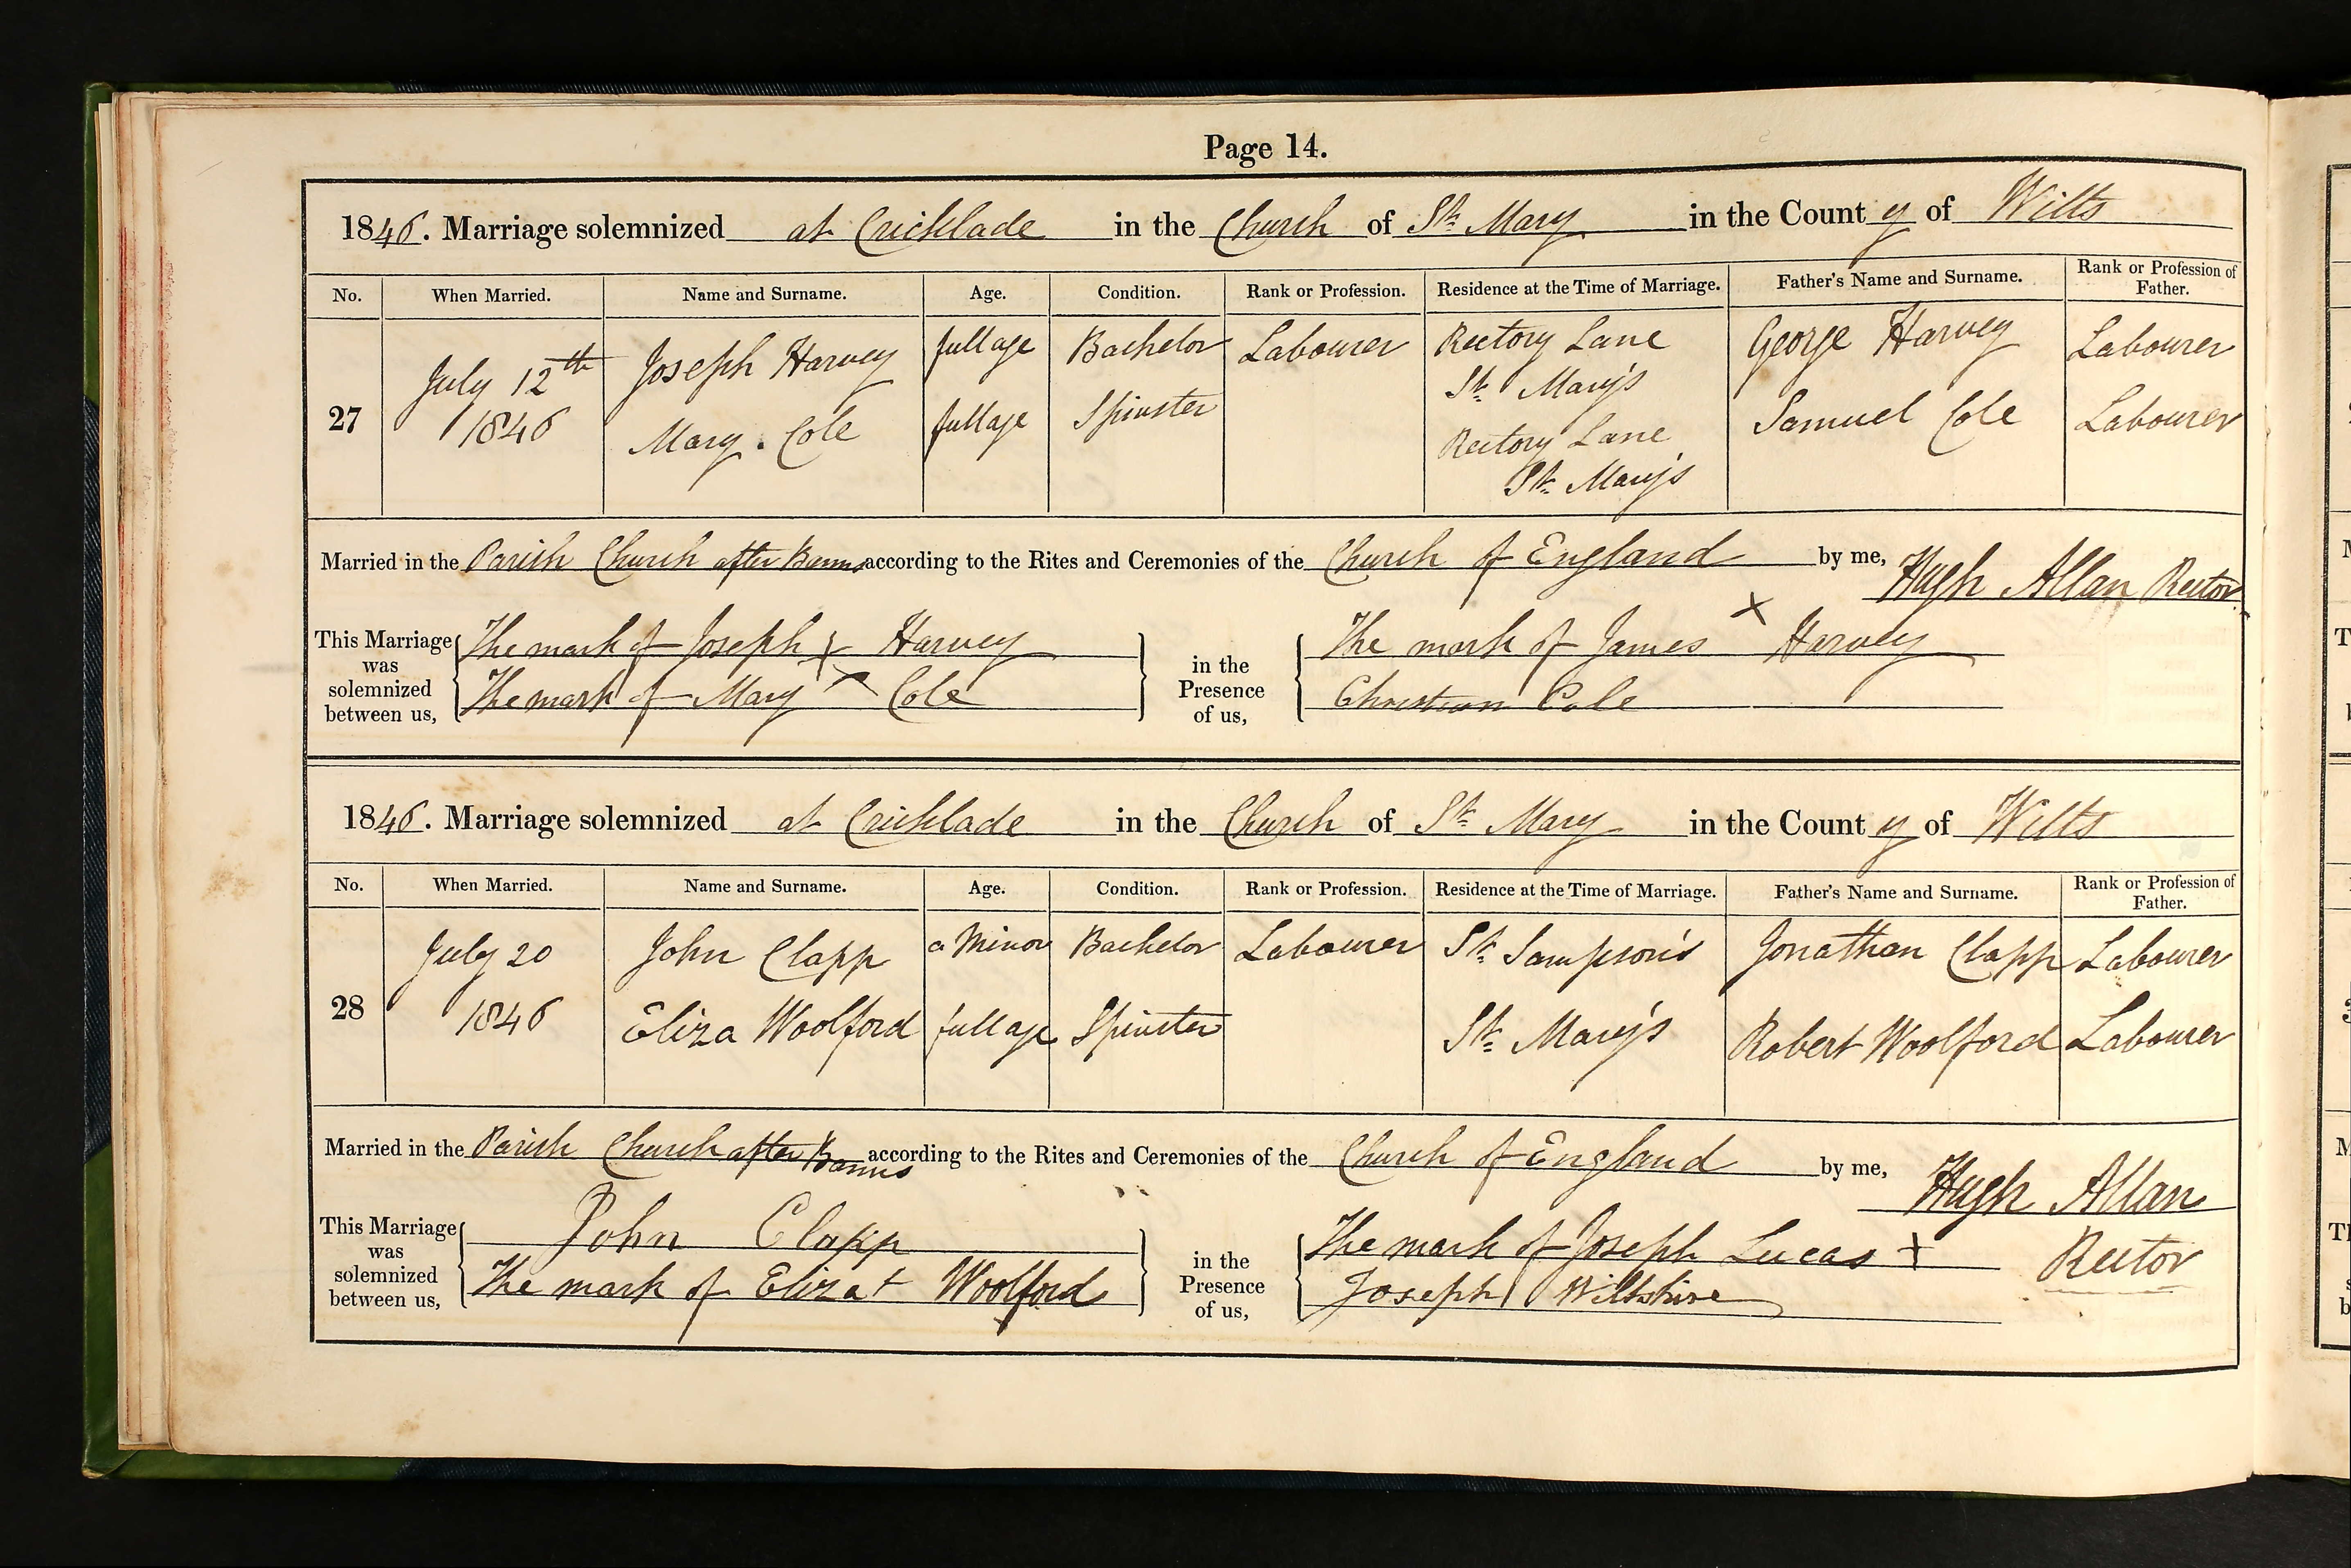 Page 14.
1846. Marriage solemnized at Cricklade in the Church of St. Mary in the County of Wilts
No. When Married. Name and Surname. Age. Condition. Rank or Profession. Residence at the Time of Marriage. Father's Name and Surname. Rank or Profession of Father.
27 July 12th 1846 Joseph Harvey full age Bachelor Labourer Rectory Lane St. Mary's George Harvey Labourer
Mary. Cole full age Spinster Rectory Lane St. Mary's Samuel Cole Labourer
Married in the Parish Church after Banns according to the Rites and Ceremonies of the Church of England by me, Hugh Allan Rector
This Marriage was solemnized between us, The mark of Joseph X Harvey
The mark of Mary X Cole
in the Presence of us, The mark of James X Harvey
Christian Cole
1846. Marriage solemnized at Cricklade in the Church of St. Mary in the County of Wilts
No. When Married. Name and Surname. Age. Condition. Rank or Profession. Residence at the Time of Marriage. Father's Name and Surname. Rank or Profession of Father.
28 July 20 1846 John Clapp a Minor Bachelor Labourer St. Sampson's Jonathan Clapp Labourer
Eliza Woolford full age Spinster St. Mary's Robert Woolford Labourer
Married in the Parish Church after Banns according to the Rites and Ceremonies of the Church of England by me, Hugh Allan Rector
This Marriage was solemnized between us, John Clapp
The mark of Eliza + Woolford
in the Presence of us, The mark of Joseph Lucas +
Joseph Wiltshire